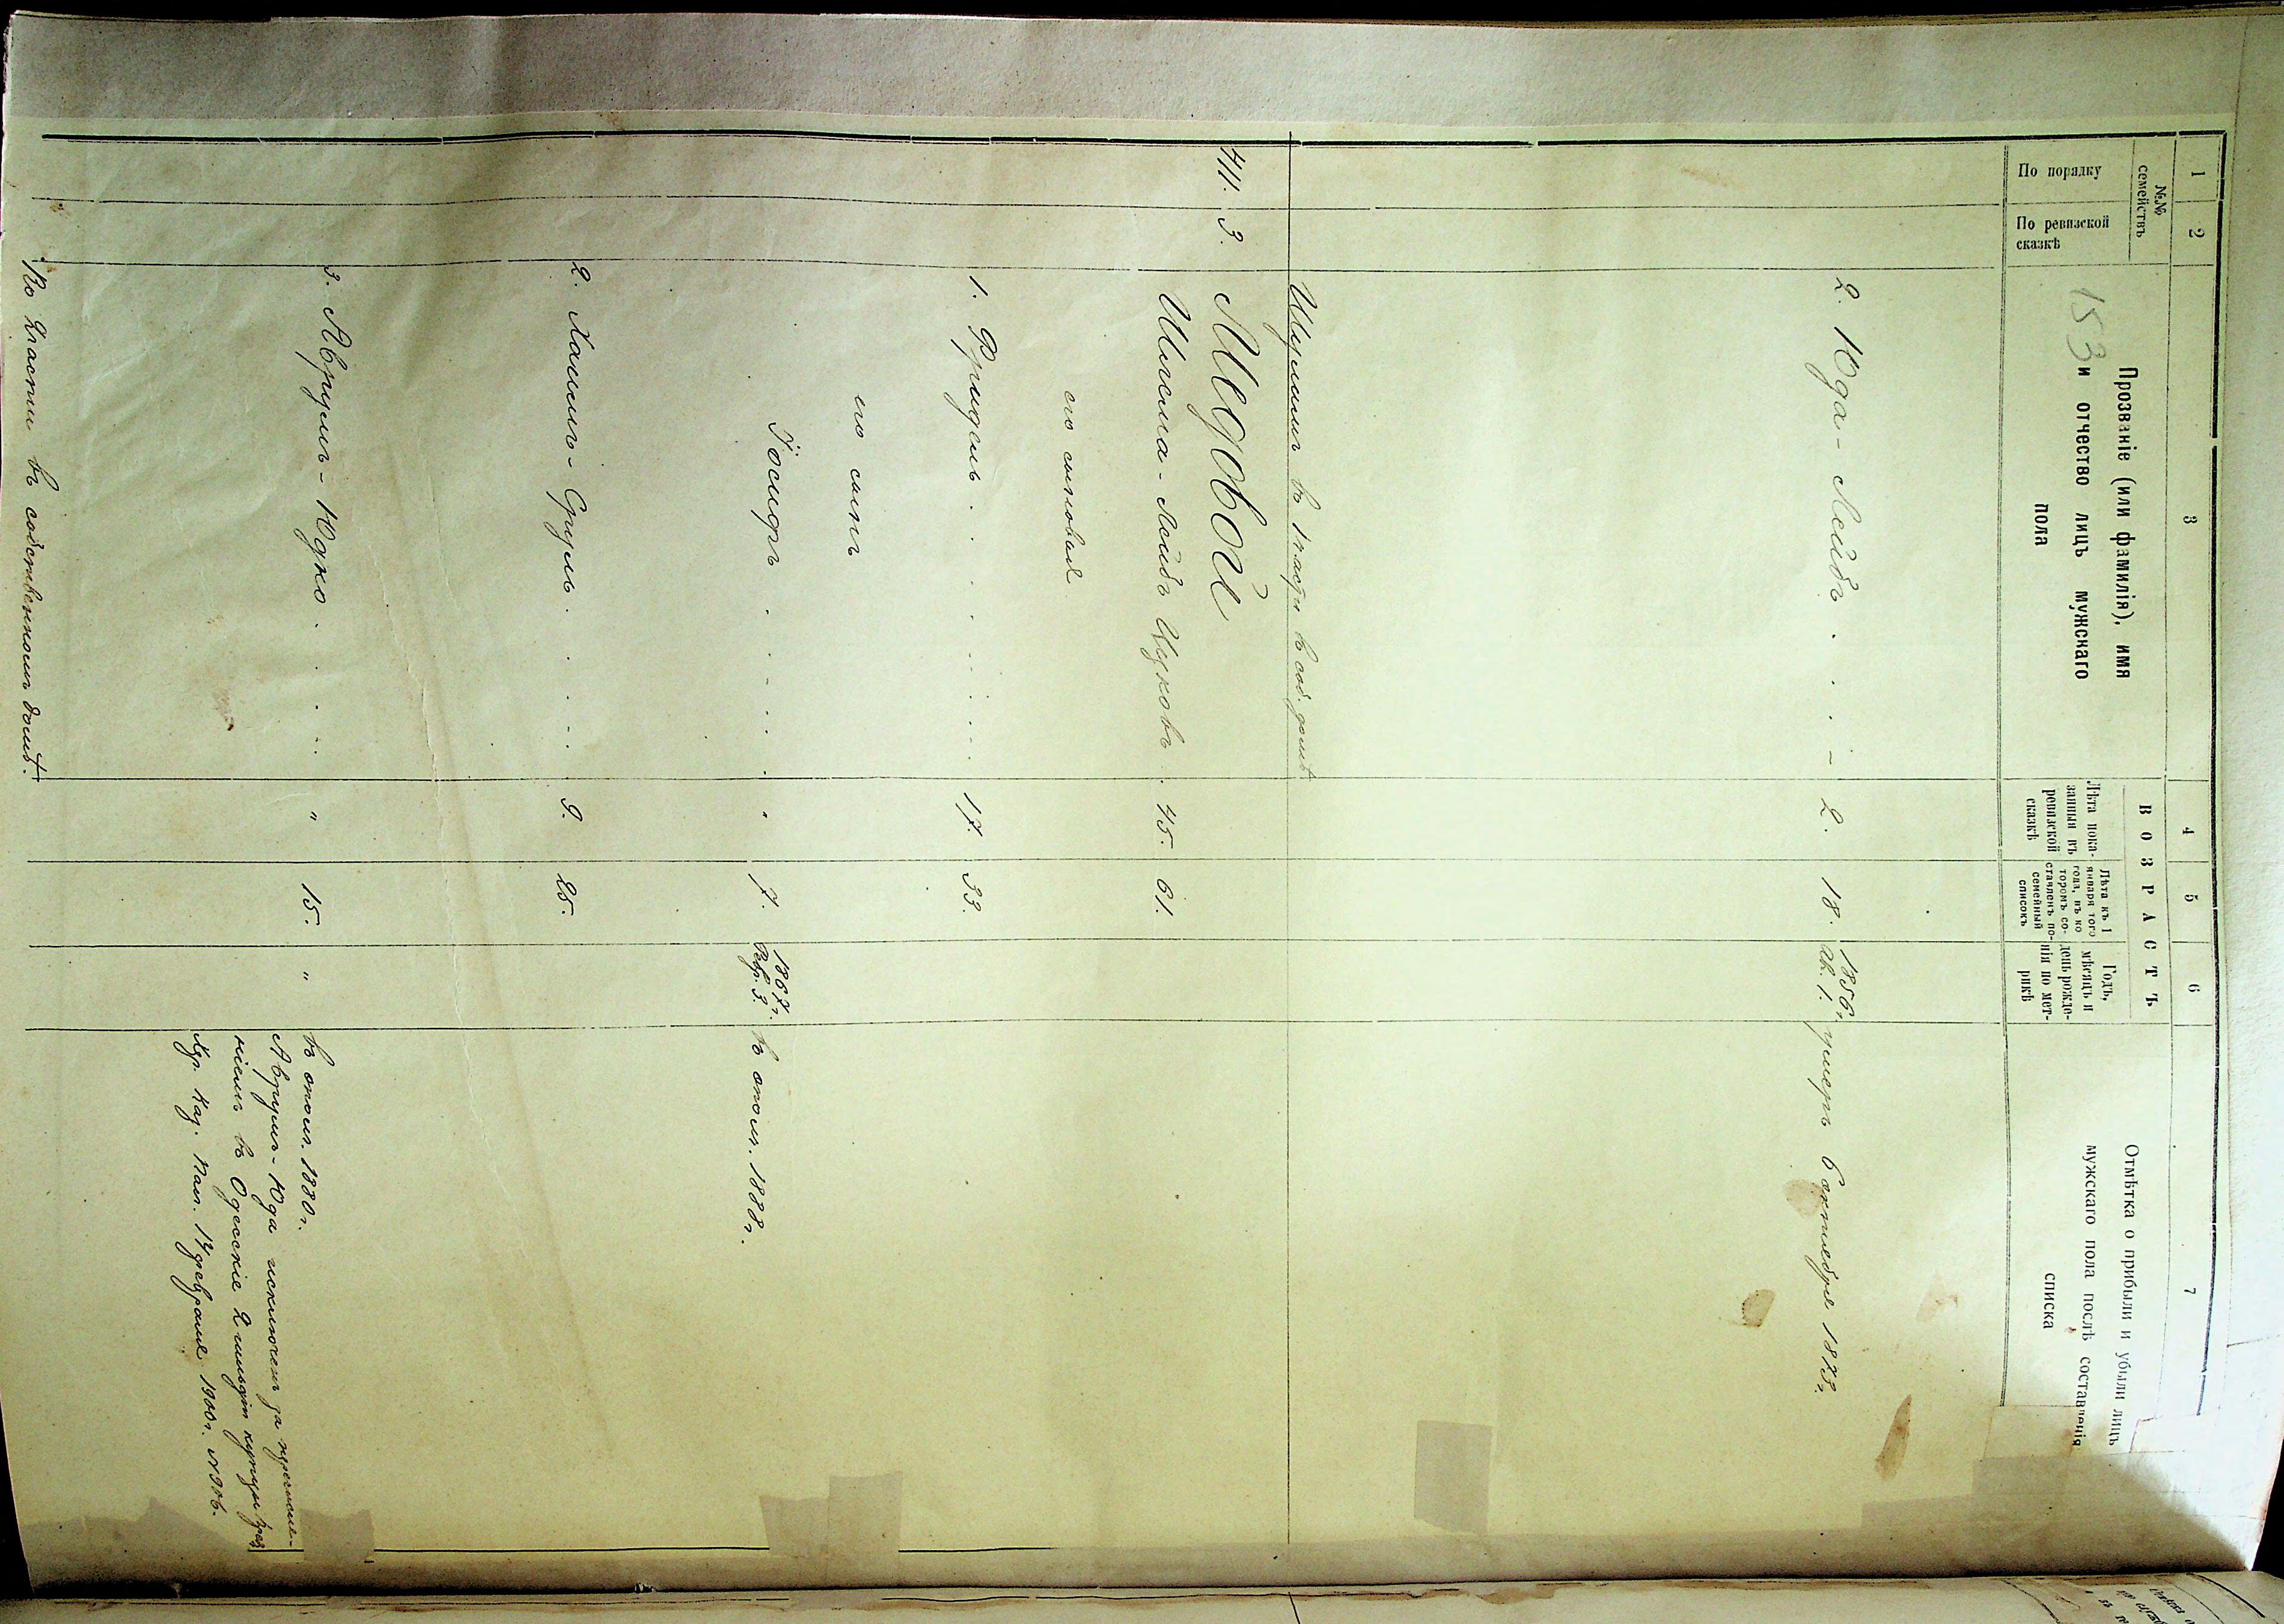 1 2 3 4 5 6 7
№№ семействъ
По порядку
По ревизской сказкѣ
Прозваніе (или фамилія), имя
и отчество лицъ мужскаго
пола
153
ВОЗРАСТЪ
Лѣта пока-
занныя въ
ревизской
сказкѣ
Лѣта къ 1
января того
года, въ ко
торомъ со-
ставленъ по-
семейный
списокъ
Годъ,
мѣсяцъ и
день рожде-
нія по мет-
рикѣ
Отмѣтка о прибыли и убыли лицъ
мужскаго пола послѣ составленія
списка
2. Юда-Лейбъ . . . - 2. 18. 1856 г. умеръ 6 октября 1873 г.
Ав. 1.
въ соб. домѣ
411. 3. Медовой
Лейбъ Ицковъ . . 45. 61.
его сыновья
1. Фридель . . . . . . 17. 33.
его сынъ
Іосифъ . . . . . " 7. 1867 г. въ ополч. 1888 г.
3.
2. Хаимъ-Сруль . . . . 9. 25.
3. Аврумъ-Юдко . . . . " 15. " въ ополч. 1880 г.
Аврумъ-Юда исключенъ за перечисле-
ніемъ въ Одесскіе 2 гильдіи купцы
Хер. Каз. Пал. 14 февраля 1900 г.
Во 2 части въ собственномъ домѣ.